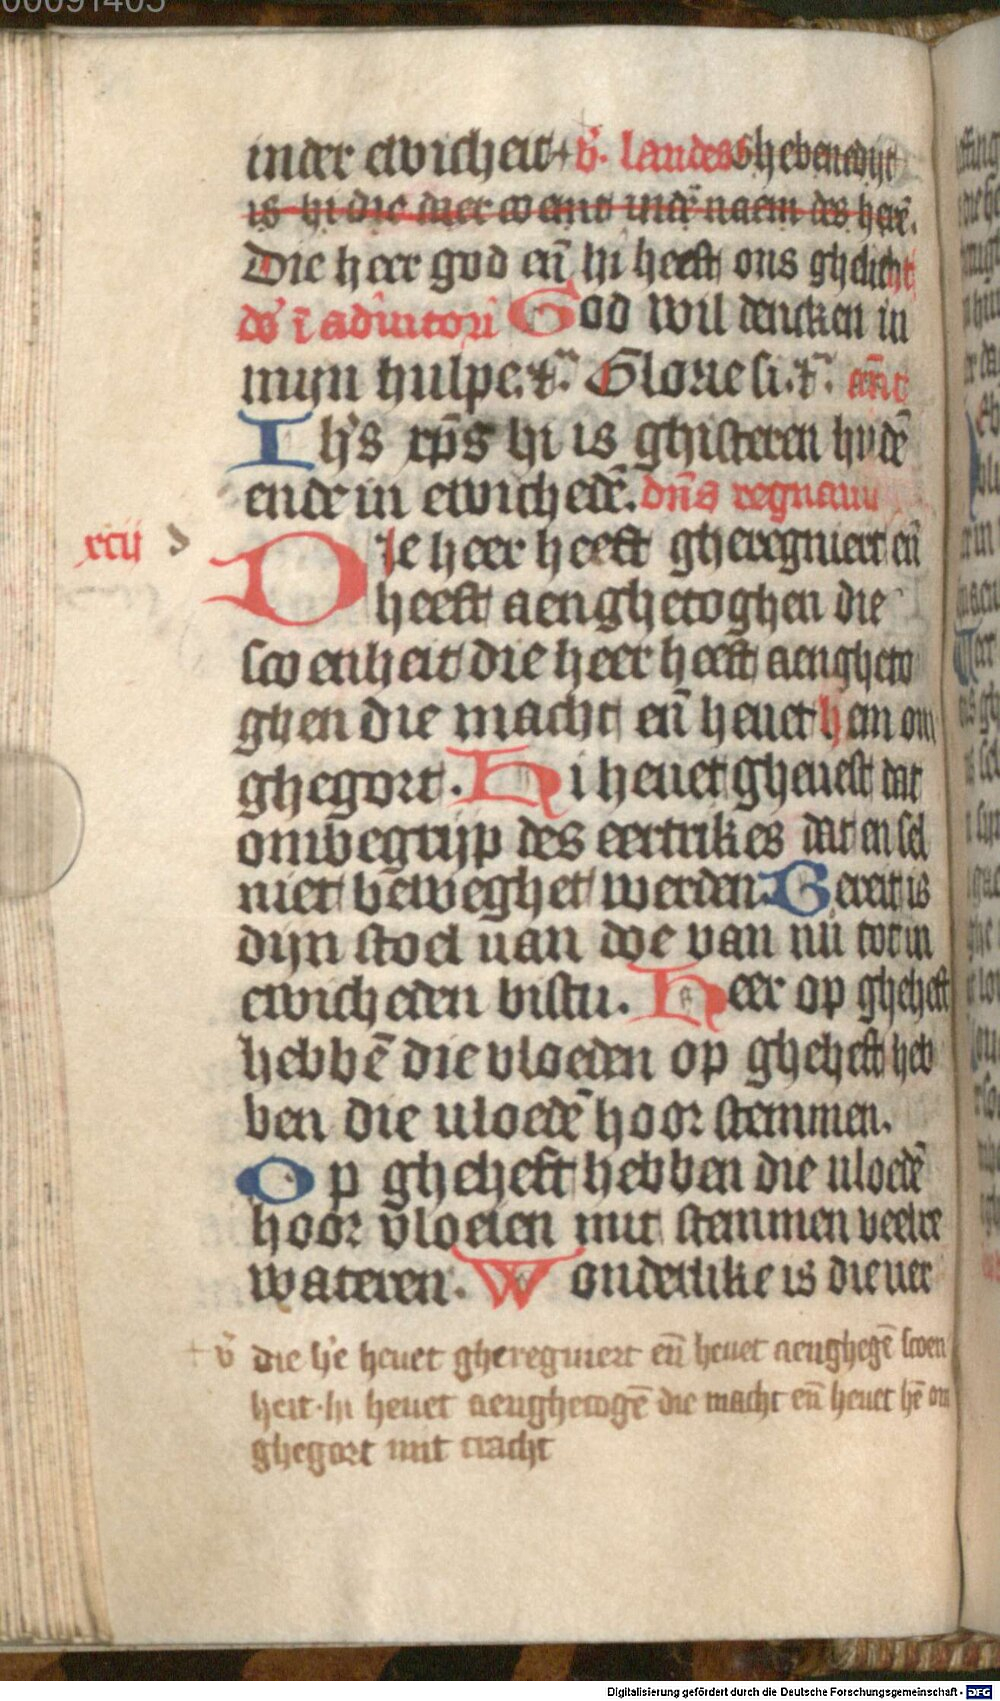 00091405
in der ewicheit + v̄. laudes Ghebenedijt
is hi die daer coemt indē naem des herē.
Die heer god eñ hi heeft ons ghelicht
ds̄ ī adiutoriū God wil dencken in
mijn hulpe. t̄. Glorie si. t̄. añt
Ihs̄ xp̄s hi is ghisteren hudē
ende in ewichedē. dn̄s regnauit
xcij d DIe heer heeft gheregniert eñ
heeft aenghetoghen die
scoenheit die heer heeft aengheto
ghen die macht eñ heuet hem om
ghegort. Hi heuet gheuest dat
ombegrijp des eertrikes dat en sel
niet beweghet werden. Bereit is
dijn stoel uan doe van nū tot in
ewicheden bistu. Heer op gheheft
hebbē die vloeden op gheheft heb
ben die uloedē hoor stemmen.
Op gheheft hebben die uloedē
hoor vloeien mit stemmen veelre
wateren. Wonderlike is die uer
+ v̄ die he heuet gheregniert eñ heuet aenghegē scoen
heit. hi heuet aenghetogē die macht eñ heuet hē om
ghegort mit cracht
Digitalisierung gefördert durch die Deutsche Forschungsgemeinschaft - DFG